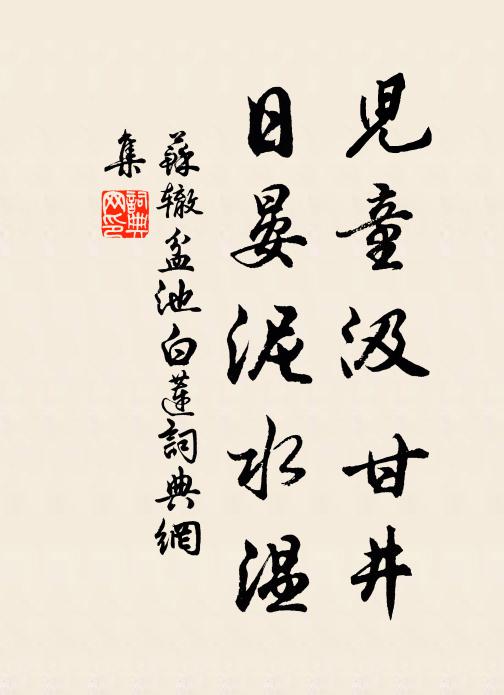 兒童汲甘井
日晏泥水温
蘇辙盆池白蓮詞典網
集
詞典
网印